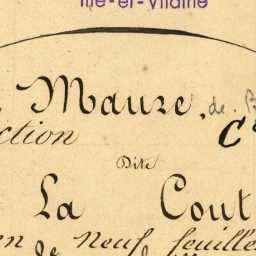 Ille-et-Vilaine
Maure, de B
ction C
Dite
La Cout
en Neuf feuilles